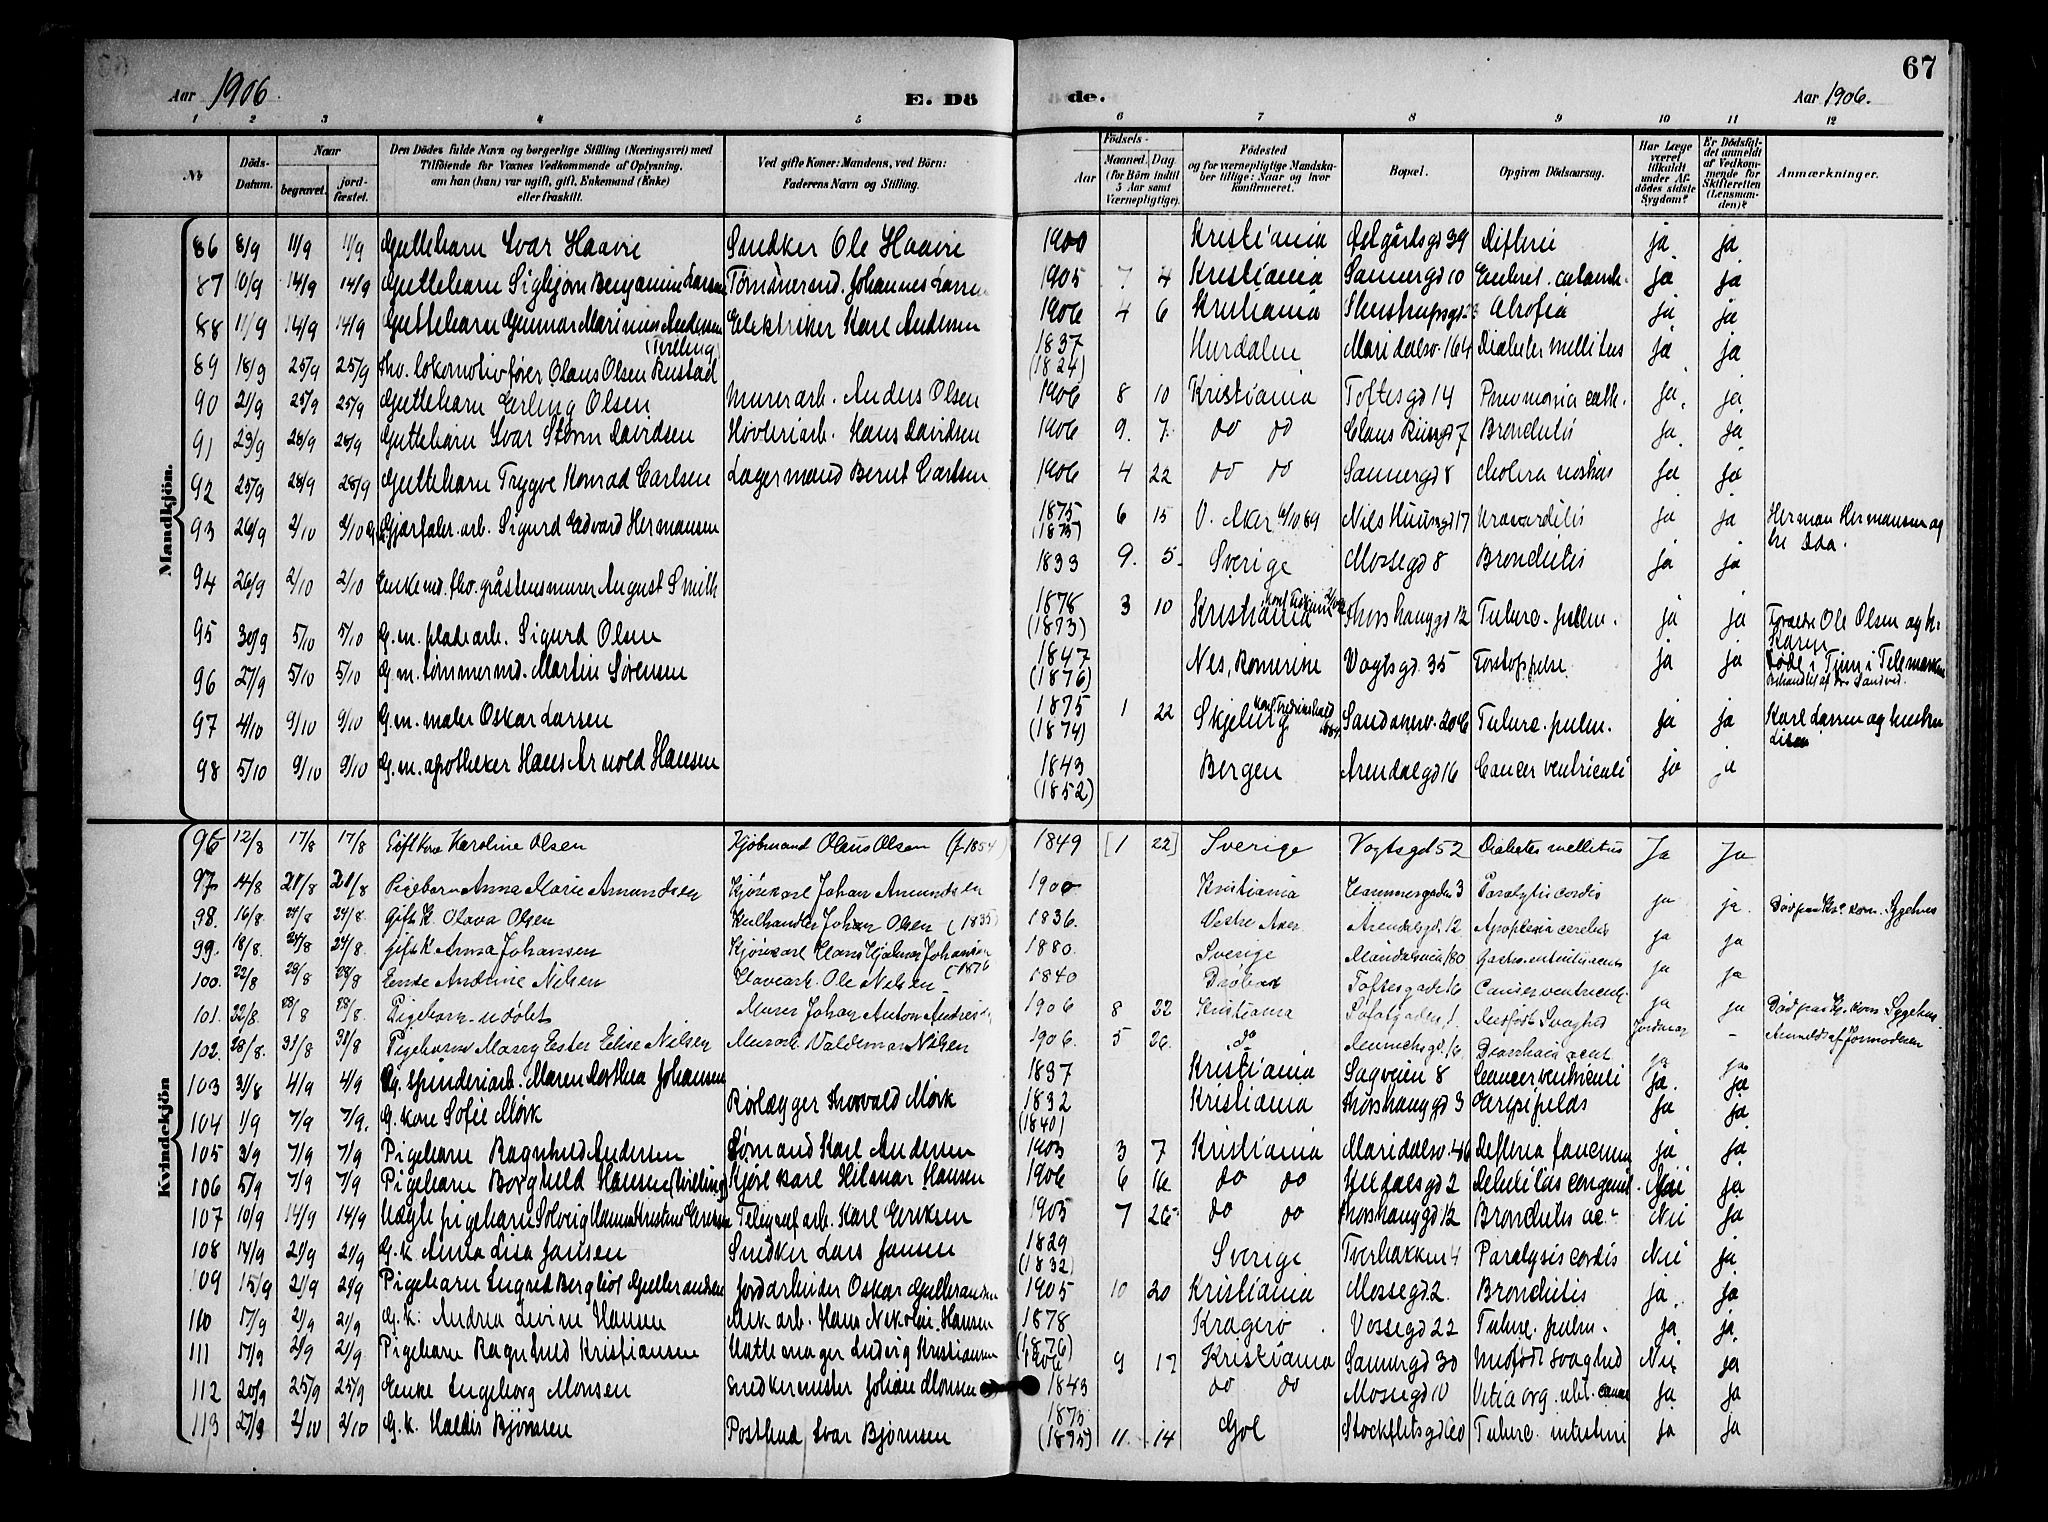 67
Aar 1906
E. Dö
de.
Aar 1906.
1 2 3 4 5 6 7 8 9 10 11 12
№
Döds-Datum.
Naar
begravet.
jord-fæstet.
Den Dödes fulde Navn og borgerlige Stilling (Næringsvei) med
Tilföiende for Voxnes Vedkommende af Oplysning,
om han (hun) var ugift, gift, Enkemand (Enke)
eller fraskilt.
Ved gifte Koner: Mandens, ved Börn:
Faderens Navn og Stilling.
Födsels-
Aar
Maaned.
Dag.
(for Börn indtil
5 Aar samt
Værnepligtige).
Födested
og for værnepligtige Mandska-
ber tillige: Naar og hvor
konfirmeret.
Bopæl.
Opgiven Dödsaarsag.
Har Læge
været
tilkaldt
under Af-
dødes sidste
Sygdom?
Er Dödsfal-
det anmeldt
af Vedkom-
mende for
Skifteretten
(Lensman-
den)?
Anmærkninger.
Mandkjön.
86 8/9 11/9 11/9 Guttebarn Ivar Haavi Snedker Ole Haavi 1900 Kristiania 39 Difteri ja ja
87 10/9 14/9 14/9 Guttebarn Sigbjørn Benjamin Larsen Tømmermd. Johannes Larsen 1905 7 4 Kristiania Sannergd 10 ja ja
88 11/9 14/9 14/9 Guttebarn Gunnar Marinius Andersen (Tvilling) Elektriker Karl Andersen 1906 4 6 Kristiania Atrofia ja ja
89 18/9 25/9 25/9 fhv. lokomotivfører Olaus Olsen Rustad 1837 (1824) Hurdalen Maridalsv. 164 Diabetes mellitus ja ja
90 21/9 25/9 25/9 Guttebarn Erling Olsen Murerarb. Anders Olsen 1906 8 10 Kristiania Toftesgd 14 Pneumonia cath. ja ja
91 23/9 28/9 28/9 Guttebarn Ivar Storm Davidsen Høvleriarb. Hans Davidsen 1906 9 7 do do Claus Riisgd 7 Bronchitis ja ja
92 25/9 28/9 28/9 Guttebarn Trygve Konrad Carlsen Lagermand Bernt Carlsen 1906 4 22 do do Sannergd 8 Cholera nostras ja ja
93 26/9 2/10 2/10 arb. Sigurd Edvard Hermansen 1875 (1875) 6 15 V. Aker 6/10 89 Nils Huusgd 17 ja ja Herman Hermansen og
94 26/9 2/10 2/10 Enkemd. fhv. gråstensmurer August Smith 1833 9 5 Sverige Mossegd 8 Bronchitis ja ja
95 30/9 5/10 5/10 G.m. pladearb. Sigurd Olsen 1878 (1873) 3 10 Kristiania Thorshauggd 12 Tuberc. pulm. ja ja Forældre Ole Olsen og h. Karen
96 27/9 5/10 5/10 G.m. tømmermd. Martin Sørensen 1847 (1876) Nes, Romerike Vogtsgd. 35 Forstoppelse ja ja Døde i Tinn i Telemarken
97 4/10 9/10 9/10 G.m. maler Oskar Larsen 1875 (1874) 1 22 Skjeberg Sandakerv. 20 Tuberc. pulm. ja ja Karl Larsen og hustru
98 5/10 9/10 9/10 G.m. apotheker Hans Arnold Hansen 1843 (1852) Bergen Arendalgd 16 Cancer ventriculi ja ja
Kvindekjön
96 12/8 17/8 17/8 Gift Kone Karoline Olsen Kjøbmand Olaus Olsen (f 1854) 1849 [1 22] Sverige Vogtsgd 52 Diabetes mellitus Ja Ja
97 14/8 21/8 21/8 Pigebarn Anna Marie Amundsen Kjørekarl Johan Amundsen 1900 Kristiania 3 Paralysis cordis ja ja. Død paa Kr. kom. Sygehus
98. 16/8. 24/8 24/8. Gift K. Olava Olsen Kulhandler Johan Olsen (1835) 1836. Vestre Aker Arendalsgd. 12 Apoplexia cerebri ja ja
99. 18/8. 24/8 24/8. Gift K Anna Johansen Kjørekarl Hans Hjalmar Johansen (1876 1880. Sverige ja ja
100. 22/8 28/8 28/8 Enke Andrine Nilsen Ole Nilsen 1840 Drøbak Toftesgade 16 Cancer ventricul. ja ja
101. 22/8. 28/8 28/8. Pigebarn udøbt Murer Johan Anton Andresen 1906 8 22 Kristiania Medfødt Svaghed Jordmor - Død paa Kr. kom. Sygehus.
102. 28/8. 31/8 31/8 Pigebarn Marry Ester Elise Nilsen Murarb. Valdemar Nilsen 1906. 5 26. do Diarrhoea acut. ja ja Anmeldt af Jormoderen
103 31/8 4/9 4/9 Ug. Spinderiarb. Maren Dorthea Johansen 1837 Kristiania Sagveien 8 Cancer ventriculi ja. ja
104 1/9 7/9 7/9. G. kone Sofie Mørk Rørlægger Thorvald Mørk 1832 (1840) Kristiania Thorshauggd 3 Erysipelas ja ja
105 3/9 7/9 7/9 Pigebarn Ragnhild Andersen Sømand Karl Andersen 1903 3 7 Kristiania Maridalsv. 46 Difteria faucium ja ja
106 5/9 7/9 7/9 Pigebarn Borghild Hansen (Tvilling) Kjørekarl Hilmar Hansen 1906 6 16 do do 2 Debilitas congenit. Nei ja
107 10/9 14/9 14/9 Uægte pigebarn Solveig Hanna Kristine Eriksen Telegrafarb. Karl Eriksen 1905 7 26 do do Thorshauggd 12 Bronchitis ac. Nei ja
108 14/9 21/9 21/9 G.k. Anna Lisa Jansen Snedker Lars Jansen 1829 (1832) Sverige Tverbakken 4 Paralysis cordis Nei ja
109 15/9 21/9 21/9 Pigebarn Ingrid Bergliot Gulbrandsen Jordarbeider Oskar Gulbrandsen 1905 10 20 Kristiania Mossegd 2. Bronchitis ja. ja
110 17/9 21/9 21/9 G.k. Andrea Levine Hansen Mek arb. Hans Nikolai Hansen 1878 (1876) Kragerø Vossegd 22 Tuberc. pulm. ja ja
111 17/9 21/9 21/9 Pigebarn Ragnhild Kristiansen Hattemager Ludvig Kristiansen 1906 9 17 Kristiania Sannergd 30 Medfødt svaghed Nei ja
112 20/9 25/9 25/9 Enke Ingeborg Monsen Snedkermester Johan Monsen 1843 do do Mossegd 10 Vitia org. ja ja
113 27/9 2/10 2/10 G.k. Haldis Bjørnsen Postbud Ivar Bjørnsen 1875 (1875) 11 14 Gol Tuberc. intestini ja ja